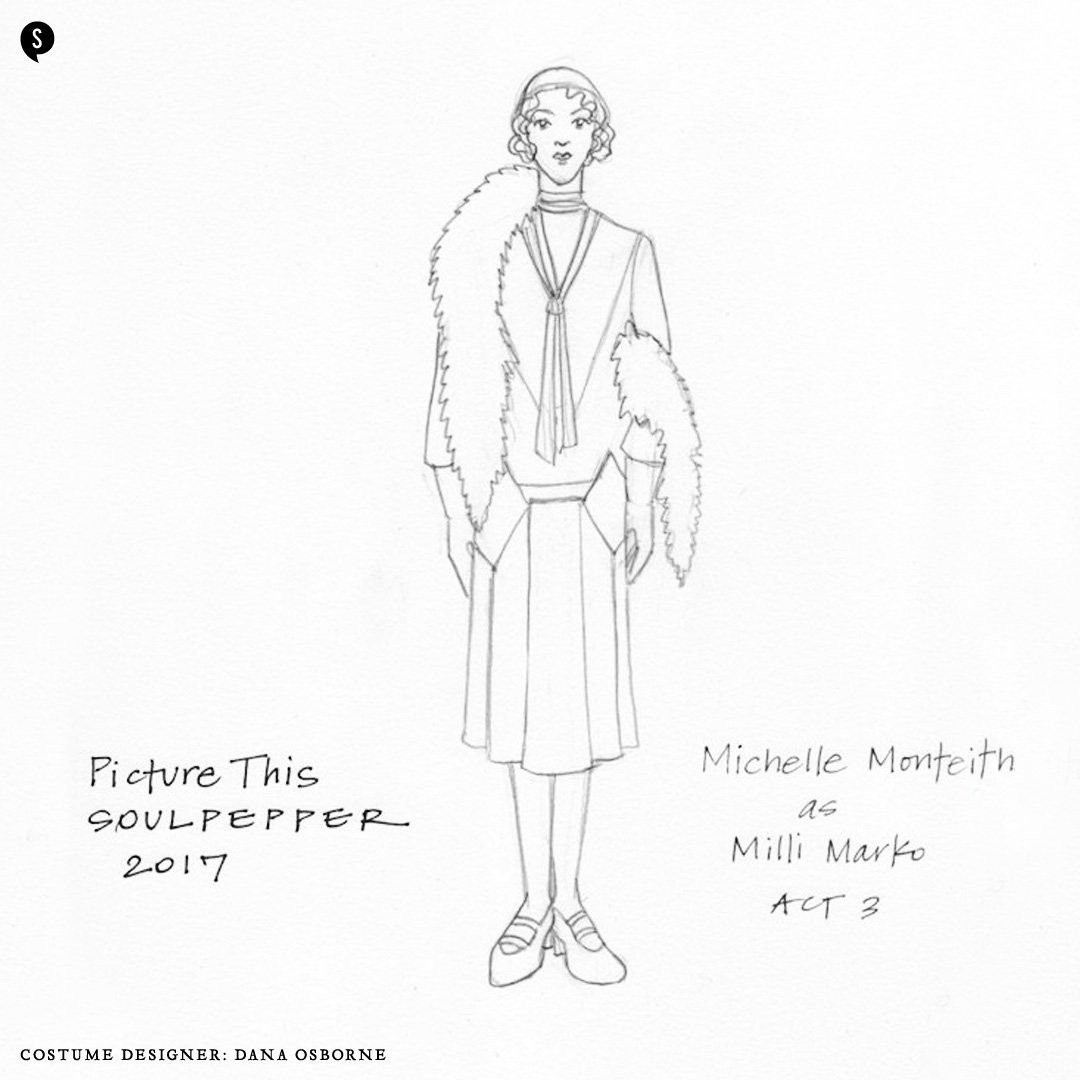 S
Picture This
SOULPEPPER
2017
Michelle Monteith
as
Milli Marko
ACT 3
COSTUME DESIGNER: DANA OSBORNE